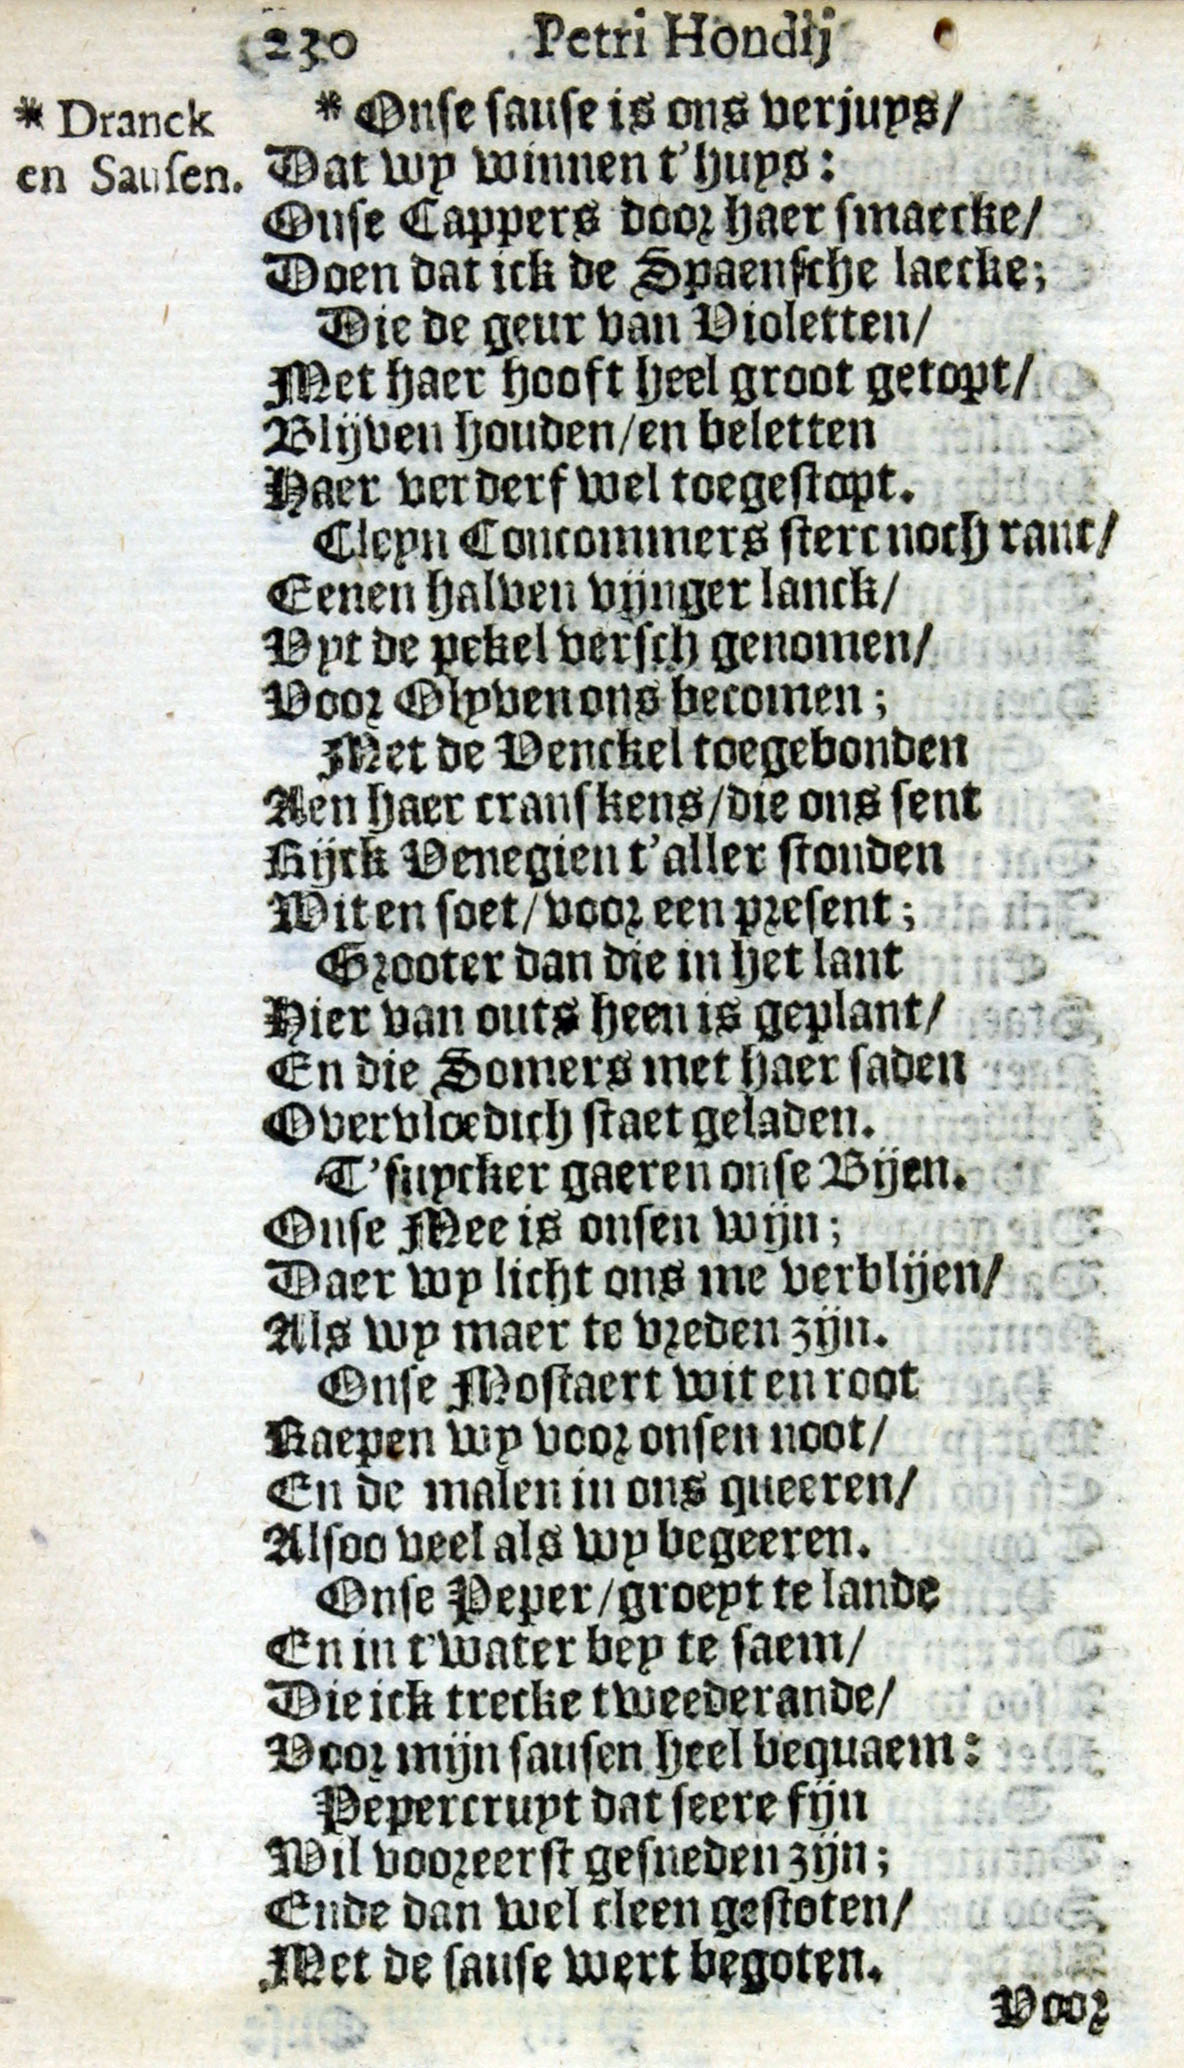 230 Petri Hondij
* Dranck
en Sausen.
* Onse sause is ons verjuys/
Dat wy winnen t'huys:
Onse Cappers door haer smaecke/
Doen dat ick de Spaensche laecke;
Die de geur van Violetten/
Met haer hooft heel groot getopt/
Blijven houden/en beletten
Haer verderf wel toegestopt.
Cleyn Concommers sterc noch ranc/
Eenen halven vijnger lanck/
Vyt de pekel versch genomen/
Voor Olyven ons becomen;
Met de Venckel toegebonden
Aen haer cranskens/die ons sent
Rijck Venegien t'aller stonden
Wit en soet/voor een present;
Grooter dan die in het lant
Hier van outs heen is geplant/
En die Somers met haer saden
Overvloedich staet geladen.
T'suycker gaeren onse Bijen.
Onse Mee is onsen wijn;
Daer wy licht ons me verblijen/
Als wy maer te vreden zijn.
Onse Mostaert wit en root
Raepen wy voor onsen noot/
En de malen in ons queeren/
Alsoo veel als wy begeeren.
Onse Peper/groeyt te lande
En in t'water bey te saem/
Die ick trecke tweederande/
Voor mijn sausen heel bequaem:
Pepercruyt dat seere fijn
Wil vooreerst gesneden zijn;
Ende dan wel cleen gestoten/
Met de sause wert begoten.
Voor